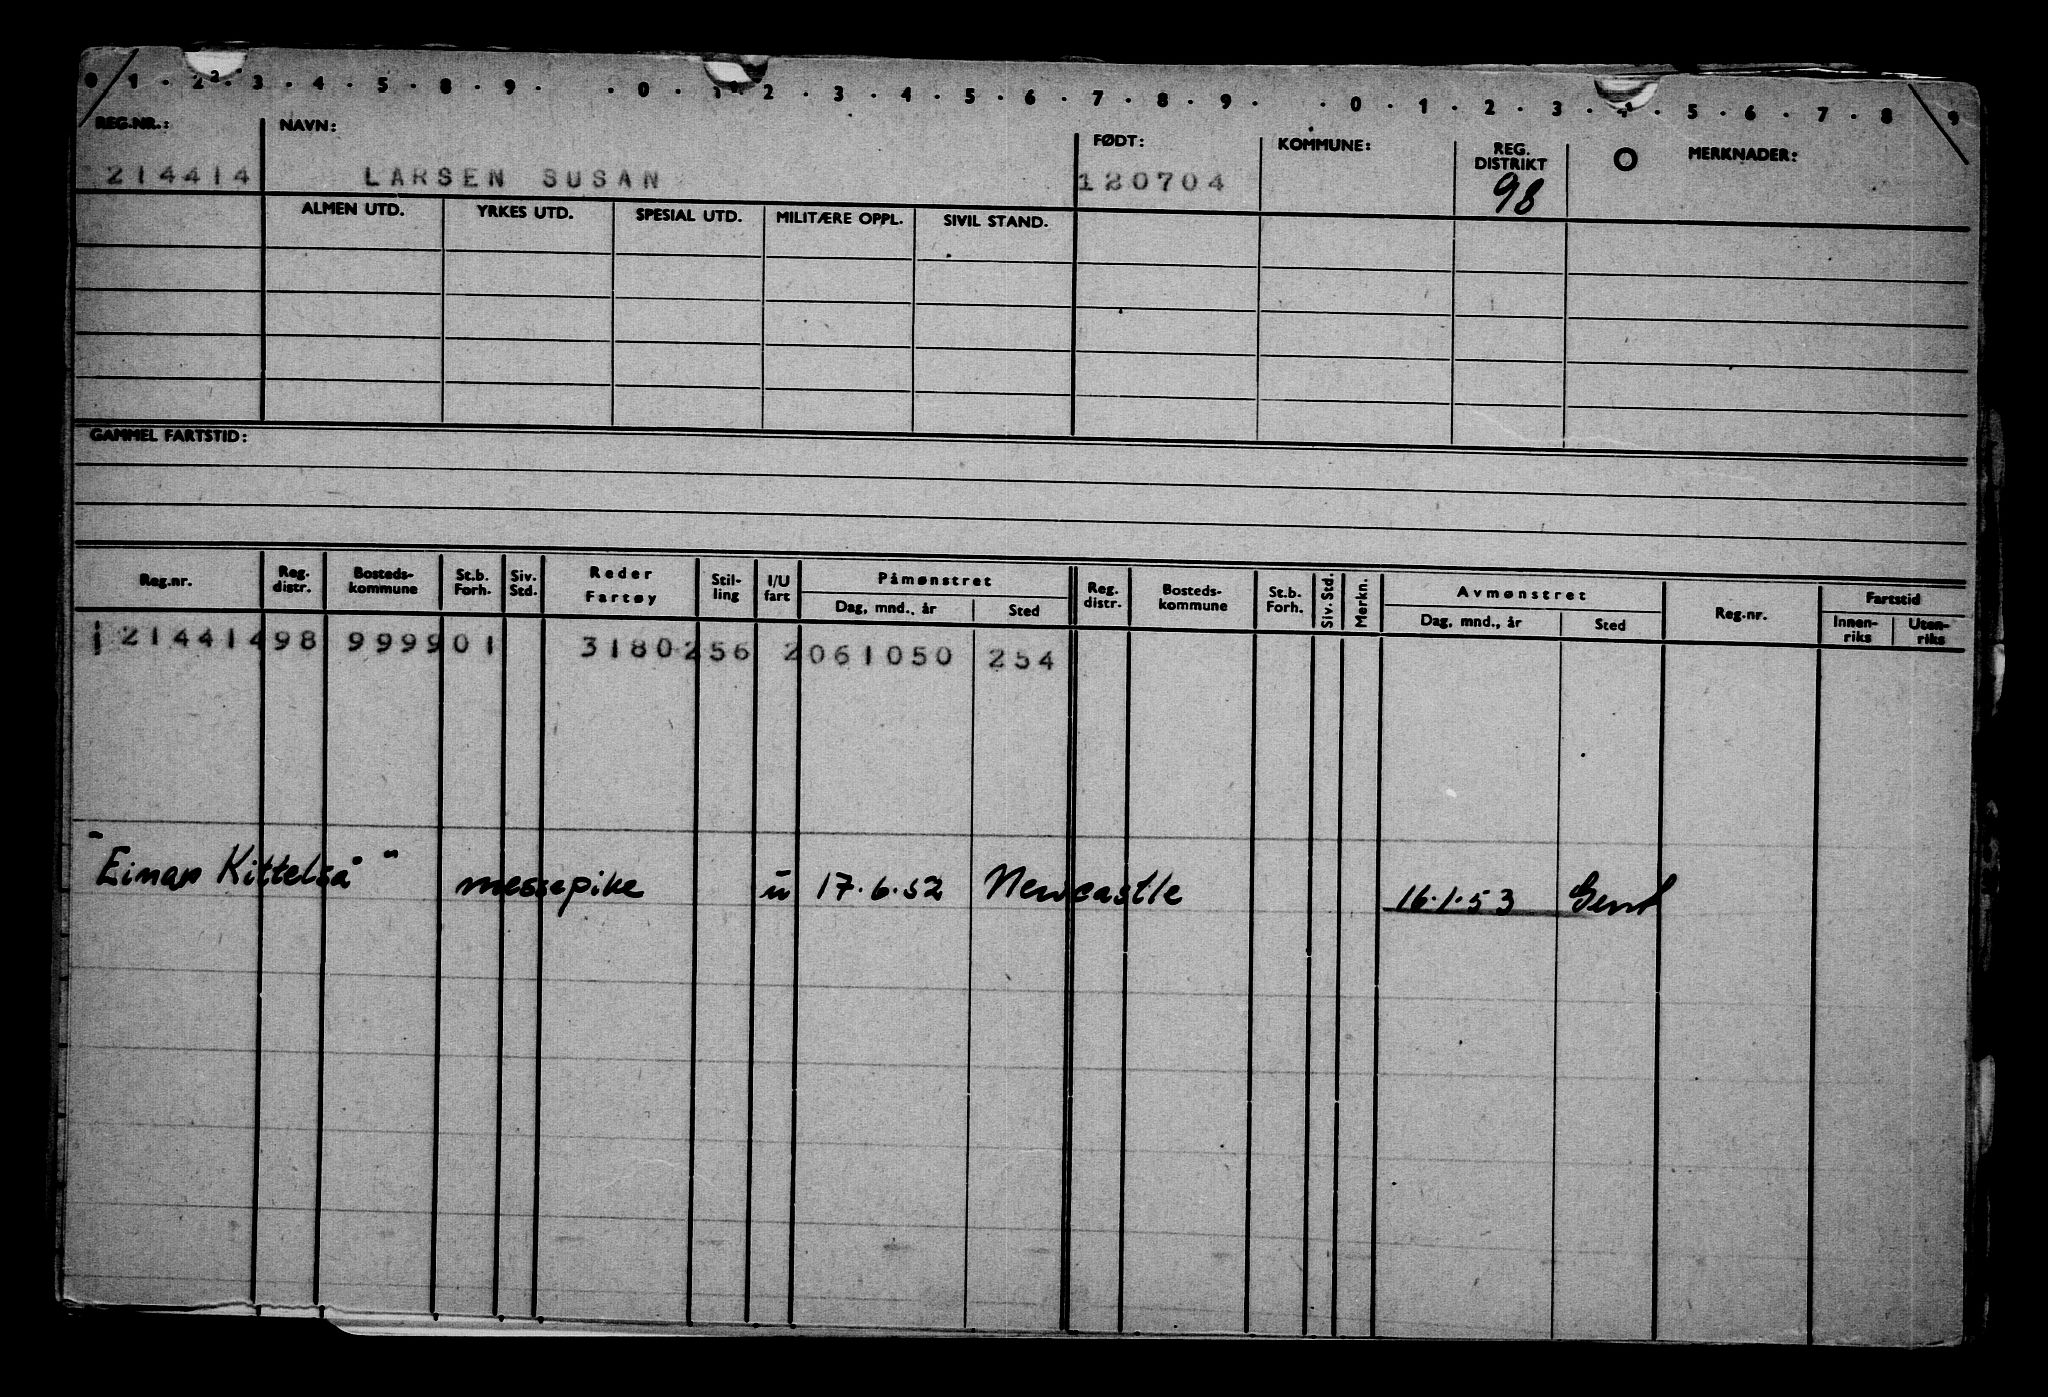 0 1 . 2 2 . 3 . 4 . 5 . 8 . 9 . . 0 . 1 1 . 2 . 3 . 4 . 5 . 6 . 7 . 8 . 9 . . 0 . 1 . 2 . 3 . 4 . 5 . 6 . 7 . 8 . 9
REG.NR.: NAVN: FØDT: KOMMUNE: REG. DISTRIKT MERKNADER:
214414 LARSEN SUSAN 120704 98
ALMEN UTD. YRKES UTD. SPESIAL UTD. MILITÆRE OPPL. SIVIL STAND.
GAMMEL FARTSTID:
Reg.nr. Reg. distr. Bosteds- kommune St.b. Forh. Siv. Std. Reder Fartøy Stil- ling I/U fart Påmønstret Dag, mnd., år Sted Reg. distr. Bosteds- kommune St.b. Forh. Siv. Std. Merkn. Avmønstret Dag, mnd., år Sted Reg.nr. Fartstid Innen- riks Uten- riks
1 214414 98 9999 01 3180 256 2 061050 254
"Einar Kittelså" messepike u 17.6.52 Newcastle 16.1.53 Gent